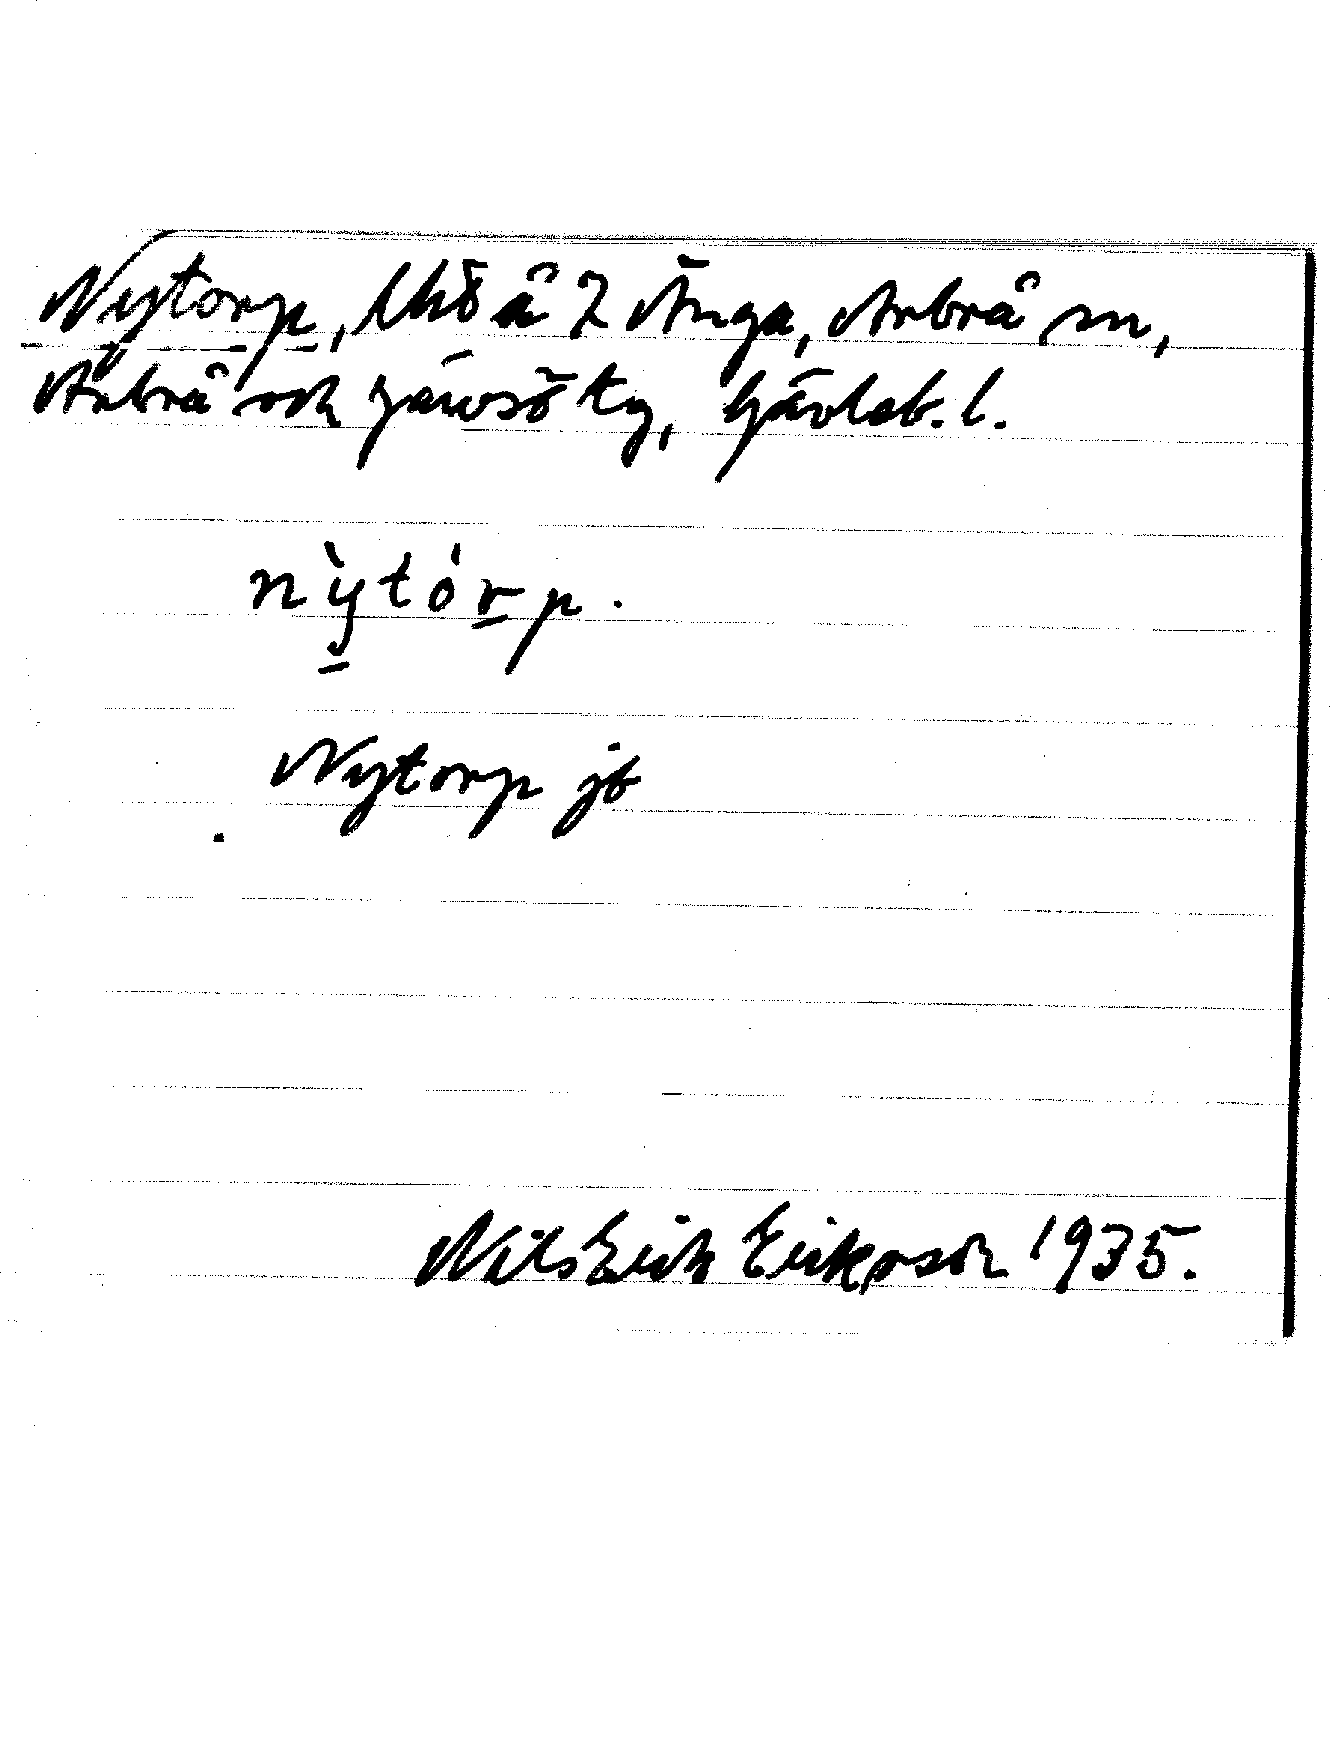 Nytorp, lhö å 2 Änga, Arbrå sn,
Arbrå och Järvsö tg, Gävleb. l.
ǹytórp.
Nytorp jb
Nils Erik Eriksson 1935.